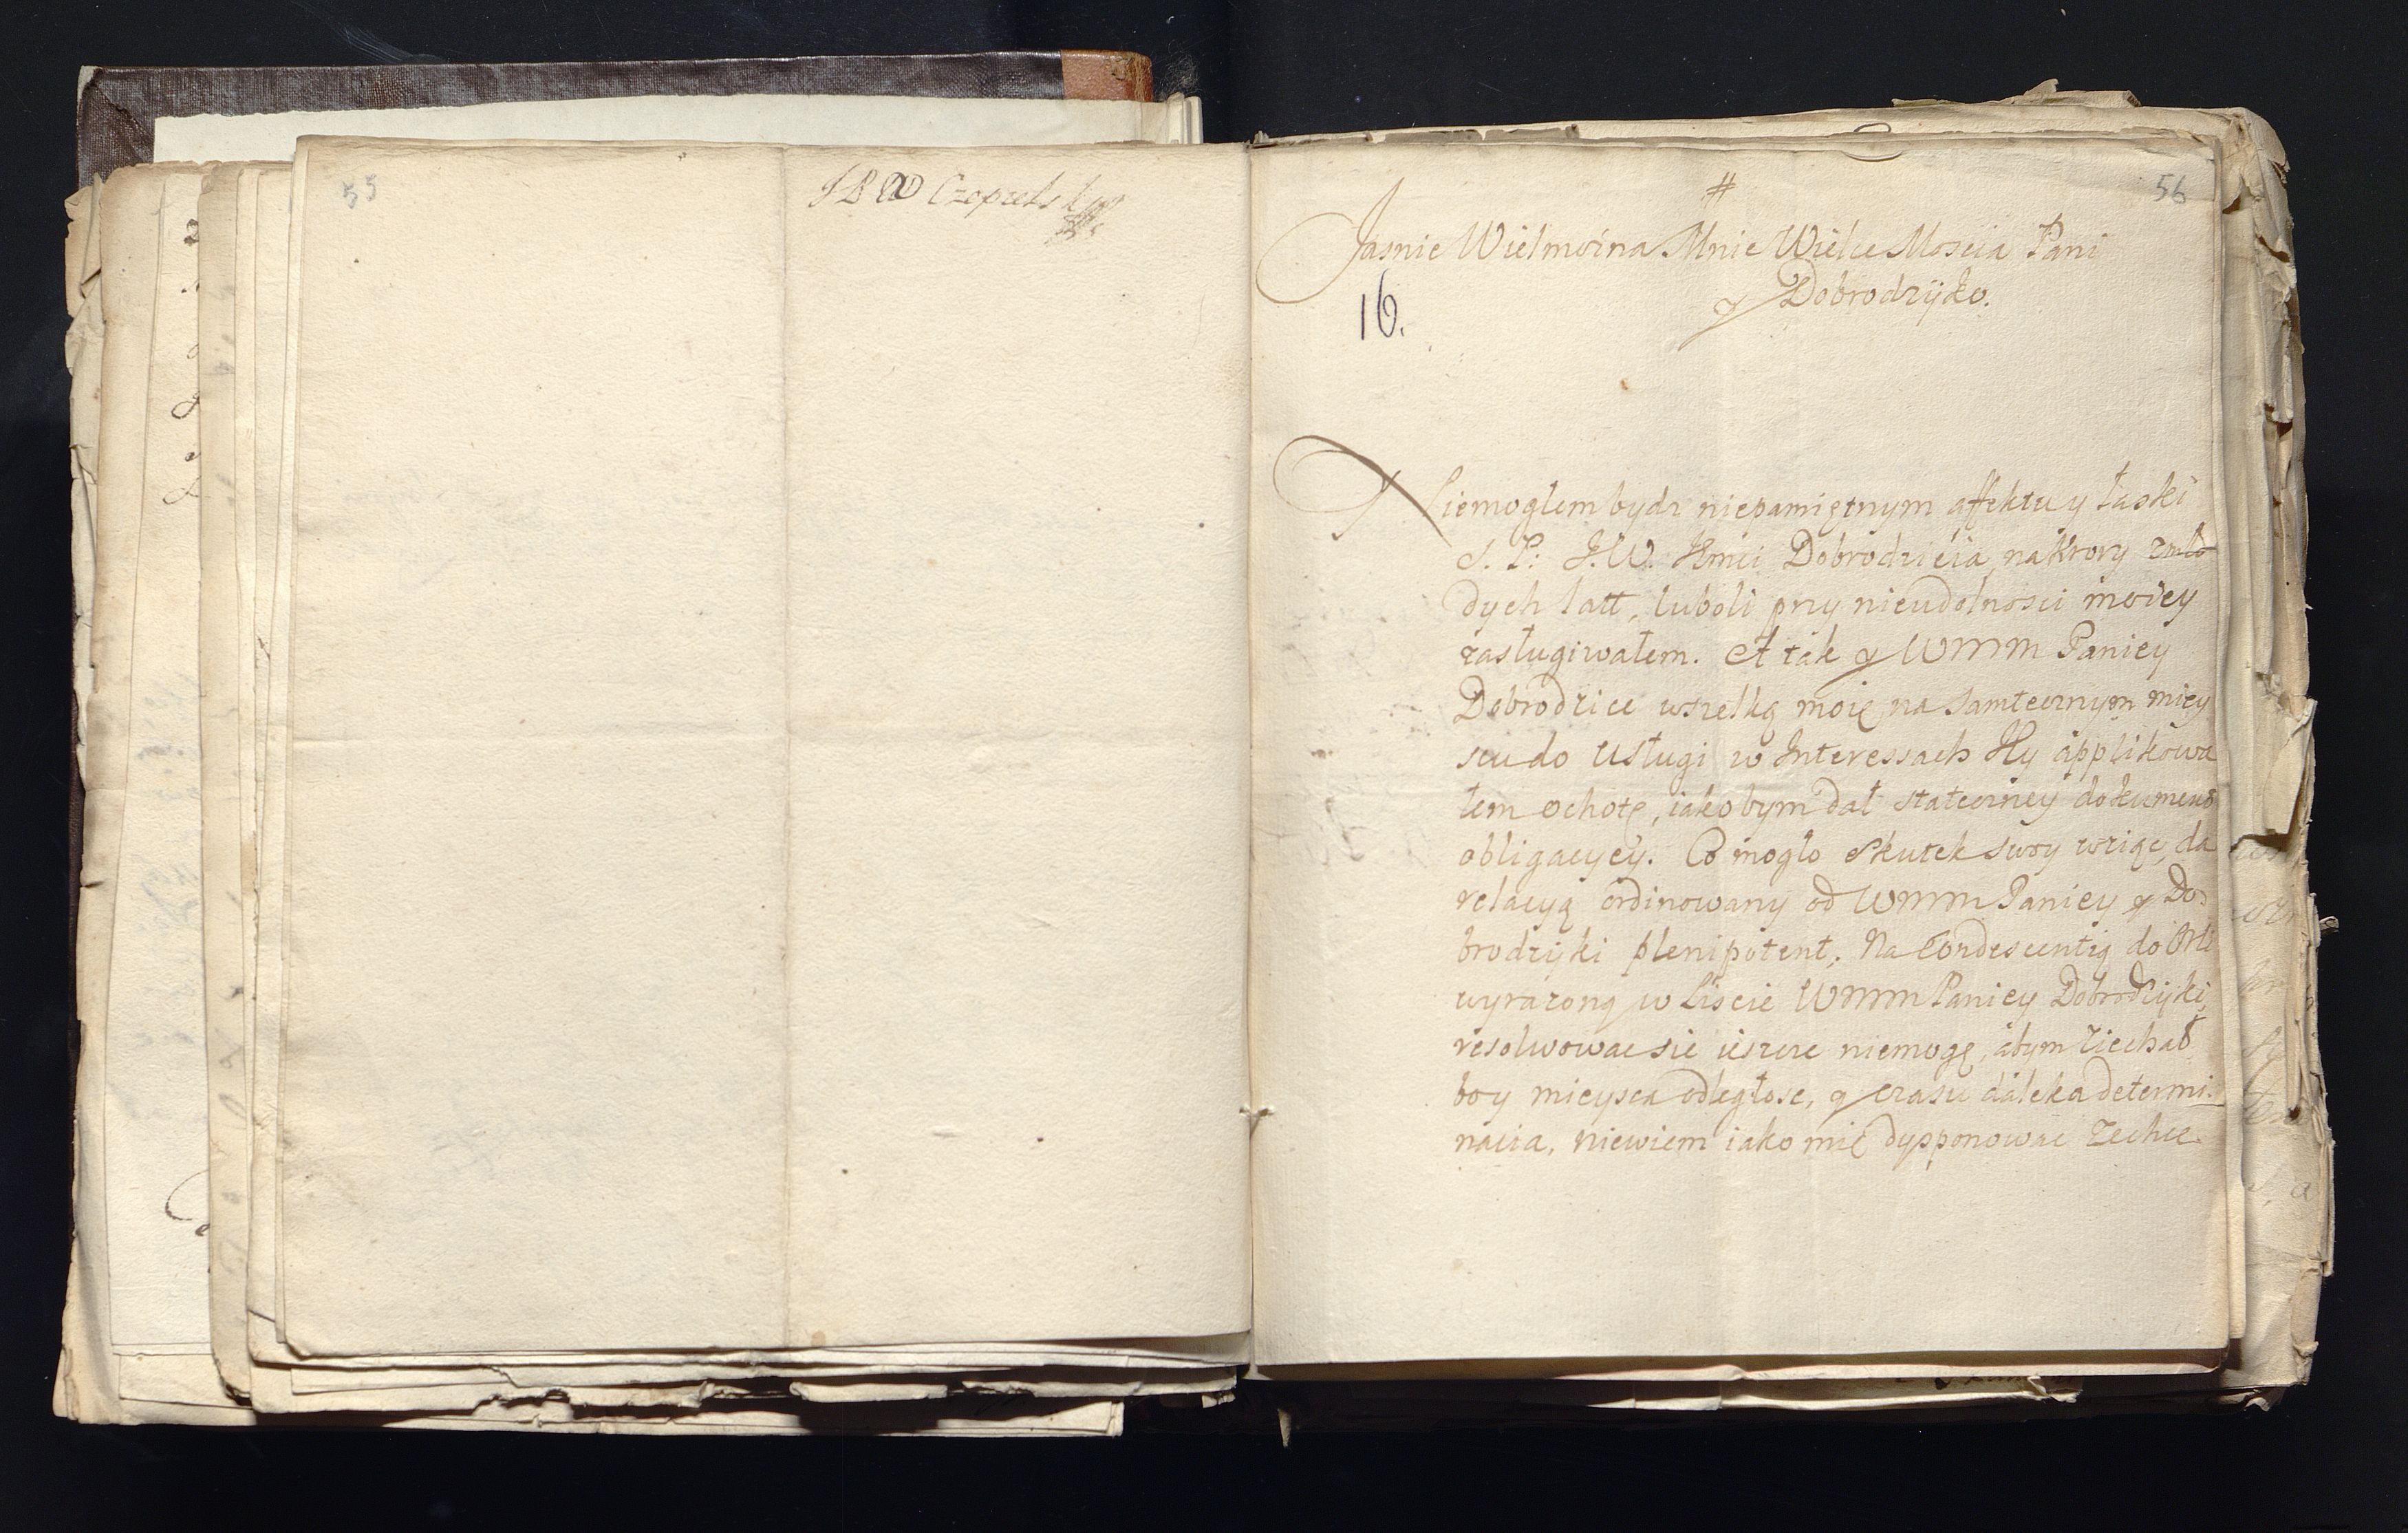 55
#
56
Jasnie Wielmożna Mnie Wielce Moscia Pani
y Dobrodzijko.
16.
Niemogłem bydz niepamiętnym affektu y łaski
S. P. J. W. Jmci Dobrodzieia, na ktory zmło
dych latt, luboli przy nieudolnosci moiey
zasługiwałem. A tak y WMM Paniey
Dobrodzice wszelką moię na tamtecznym miey
scu do usługi w Interessach Jey applikowa
łem ochotę, iakobym dał stateczney dokument
obligacyey. Co mogło skutek swoy wziąc, da
relacyą ordinowany od WMM Paniey y Do
brodzijki plenipotent. Na Condescentią do
wyrazoną w Liscie WMM Paniey Dobrodzijki,
resolwowac sie ieszcze niemogę, abym ziechał
boy mieysca odległosc, y czasu daleka determi
nacia, niewiem iako mię dysponowac zechce